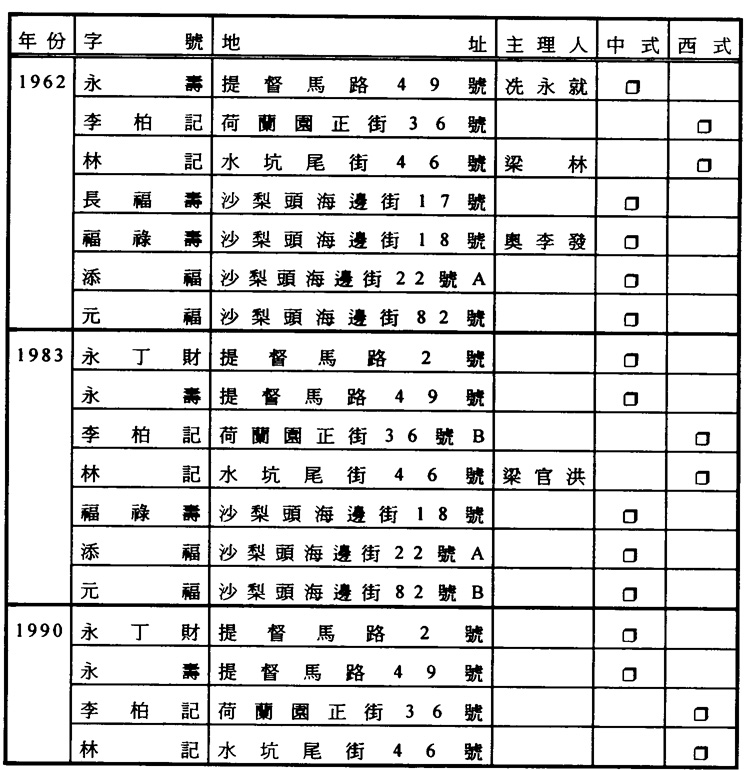 年份 字號 地址 主理人 中式 西式
1962 永壽 提督馬路49號 冼永就 □
李柏記 荷蘭園正街36號 □
林記 水坑尾街46號 梁林 □
長福壽 沙梨頭海邊街17號 □
福祿壽 沙梨頭海邊街18號 奧李發 □
添福 沙梨頭海邊街22號A □
元福 沙梨頭海邊街82號 □
1983 永丁財 提督馬路2號 □
永壽 提督馬路49號 □
李柏記 荷蘭園正街36號B □
林記 水坑尾街46號 梁官洪 □
福祿壽 沙梨頭海邊街18號 □
添福 沙梨頭海邊街22號A □
元福 沙梨頭海邊街82號B □
1990 永丁財 提督馬路2號 □
永壽 提督馬路49號 □
李柏記 荷蘭園正街36號 □
林記 水坑尾街46號 □